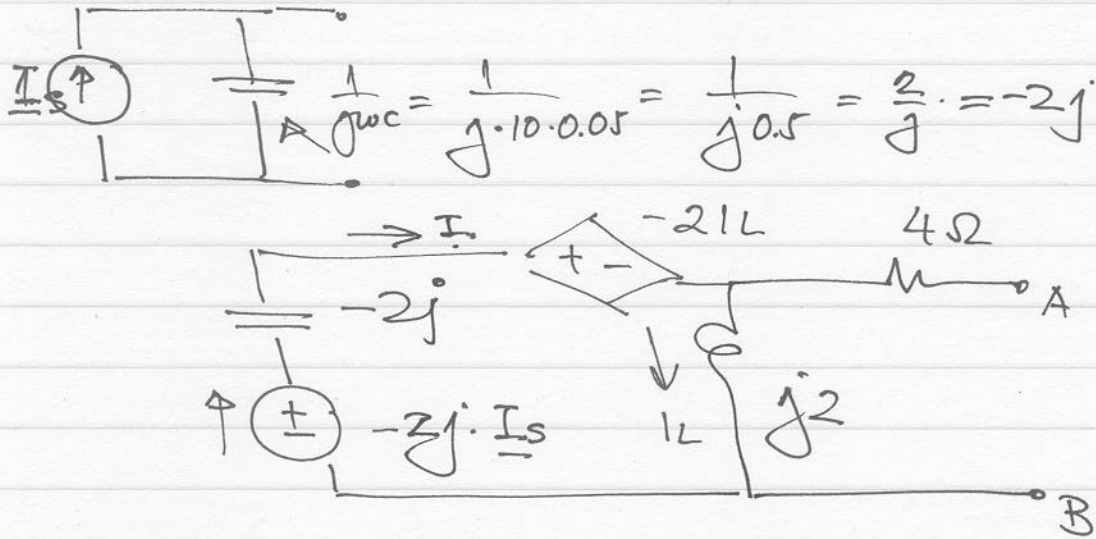 Is 1/jωc = 1/j·10·0.05 = 1/j0.5 = 2/j · = -2j
→ I + - -2IL 4Ω
-2j A
± -2j · Is IL j2
B